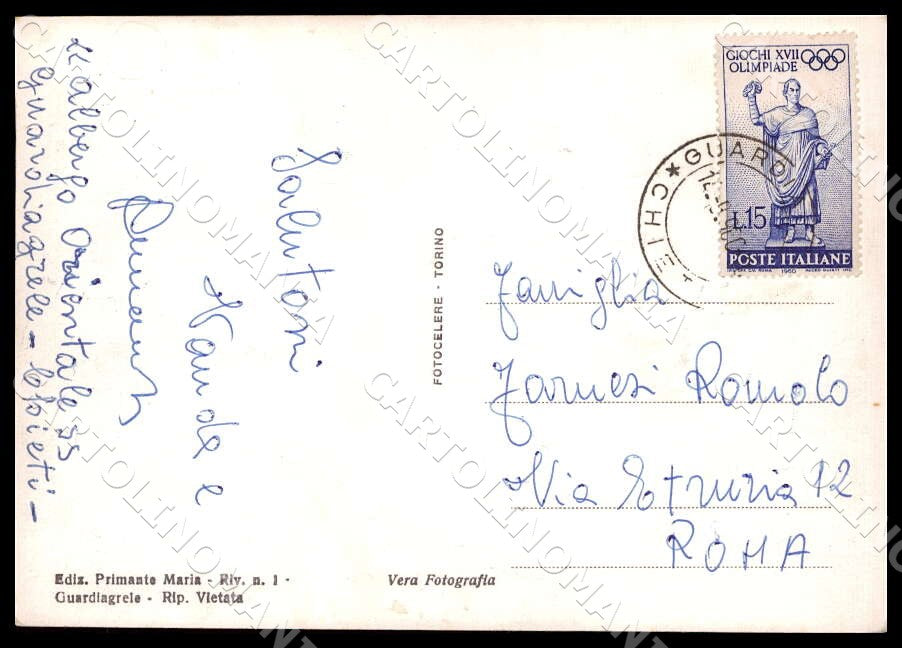 "albergo Orientale"
Guardiagrele - Chieti -
Salutoni
Wanda e
FOTOCELERE - TORINO
GIOCHI XVII
OLIMPIADE
L.15
POSTE ITALIANE
1960
★ GUARD
CHIE
Famiglia
Farnesi Romolo
Via Etruria 12
ROMA
Ediz. Primante Maria - Riv. n. 1 -
Guardiagrele - Rip. Vietata
Vera Fotografia
CARTOLINOMANIA